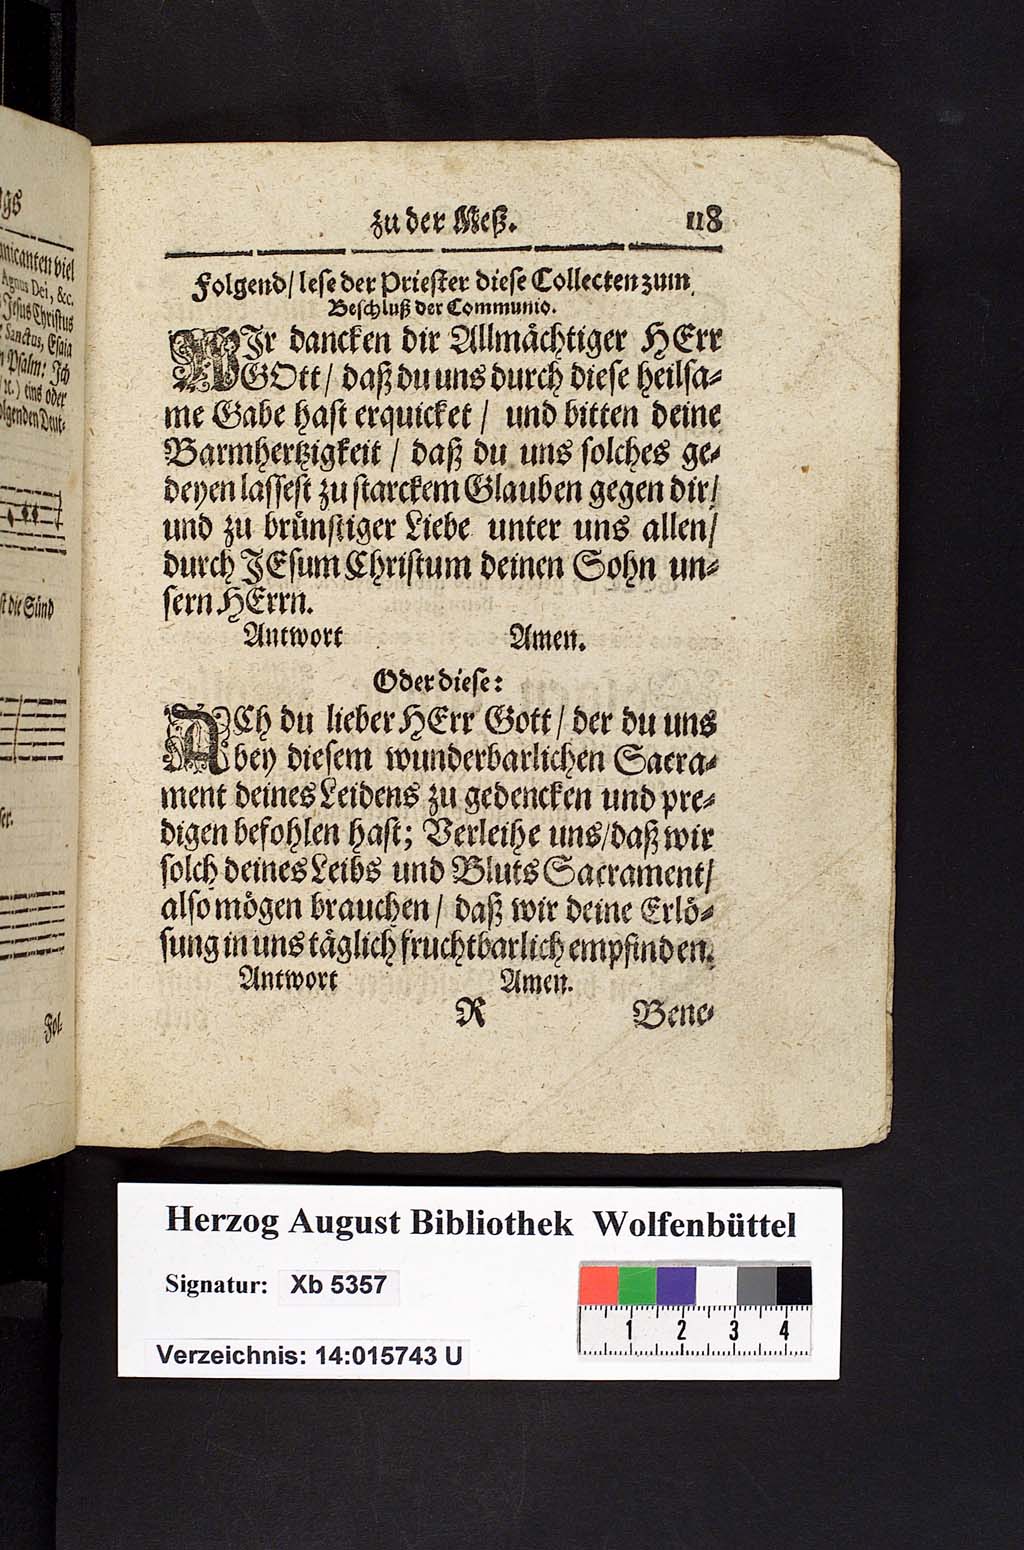 gs
nicanten viel
Agnus Dei, &c.
Jesus Christus
Sanctus, Esaia
Psalm: Ich
/ ꝛc.) eins oder
olgenden Deut-
st die Sünd
Fol-
zu der Meß. 118
Folgend/ lese der Priester diese Collecten zum
Beschluß der Communio.
WIr dancken dir Allmächtiger HErr
GOtt/ daß du uns durch diese heilsa-
me Gabe hast erquicket / und bitten deine
Barmhertzigkeit / daß du uns solches ge-
deyen lassest zu starckem Glauben gegen dir/
und zu brünstiger Liebe unter uns allen/
durch JEsum Christum deinen Sohn un-
sern HErrn.
Antwort Amen.
Oder diese:
ACh du lieber HErr Gott/ der du uns
bey diesem wunderbarlichen Sacra-
ment deines Leidens zu gedencken und pre-
digen befohlen hast; Verleihe uns/daß wir
solch deines Leibs und Bluts Sacrament/
also mögen brauchen/ daß wir deine Erlö-
sung in uns täglich fruchtbarlich empfinden.
Antwort Amen.
R Bene-
Herzog August Bibliothek Wolfenbüttel
Signatur: Xb 5357
Verzeichnis: 14:015743 U
1 2 3 4